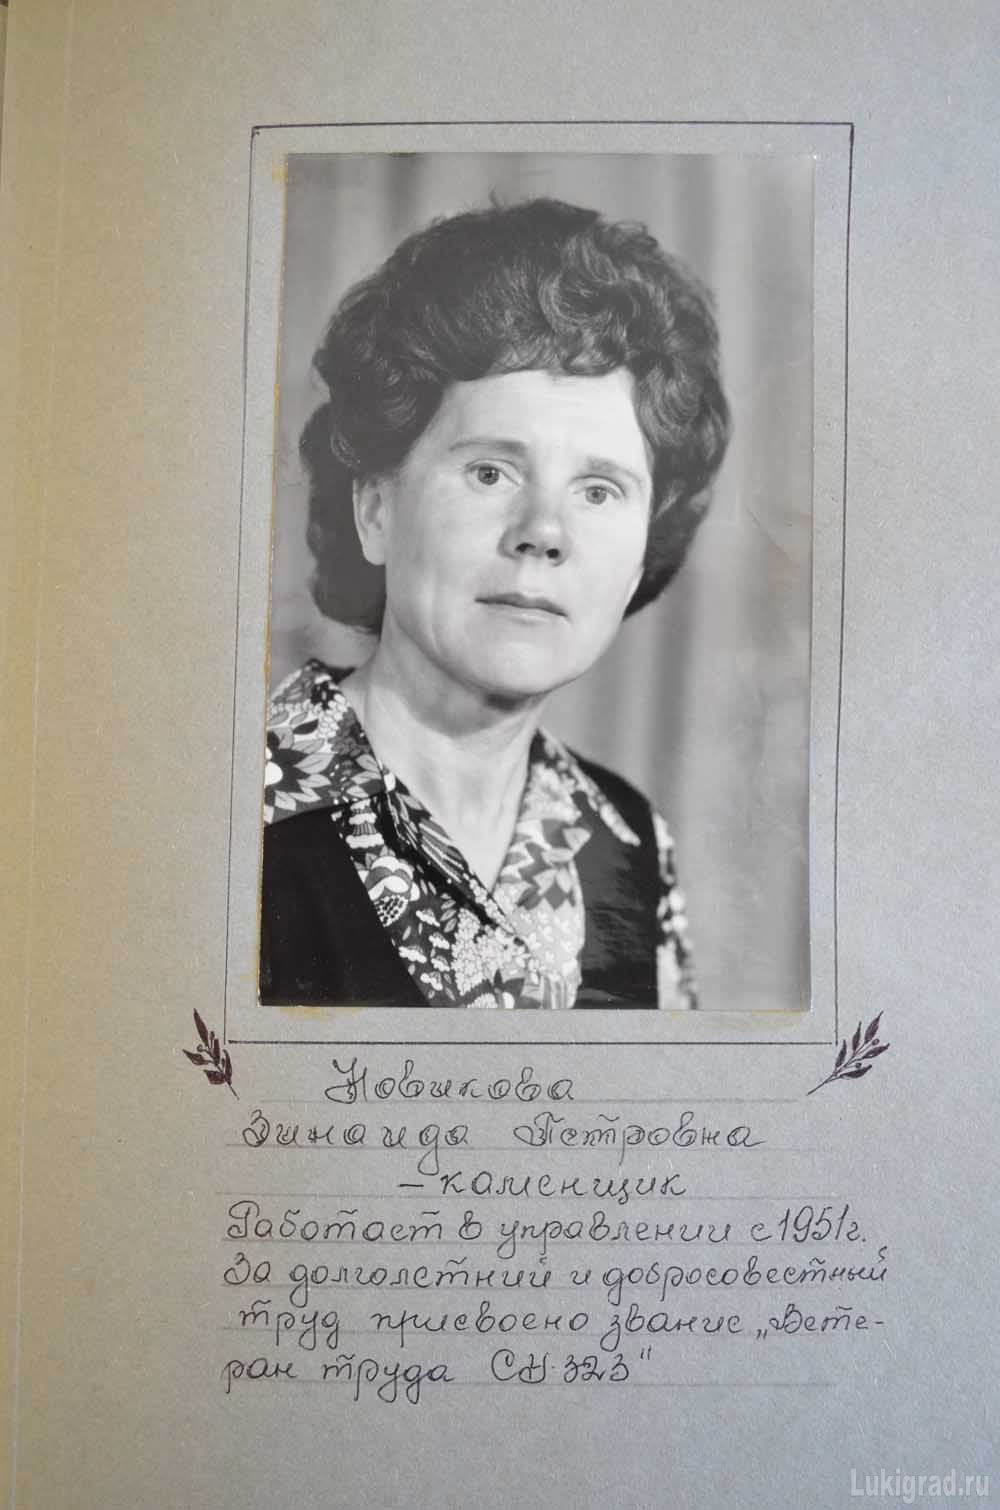 Новикова
Зинаида Петровна
– каменщик
Работает в управлении с 1951г.
За долголетний и добросовестный
труд присвоено звание „Вете-
ран труда СУ-323"
Lukigrad.ru